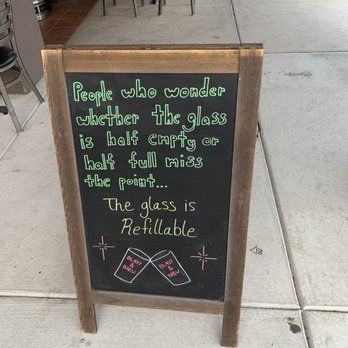 People who wonder
whether the glass
is half empty or
half full miss
the point...
The glass is
Refillable
BLAST & BREW
BLAST & BREW